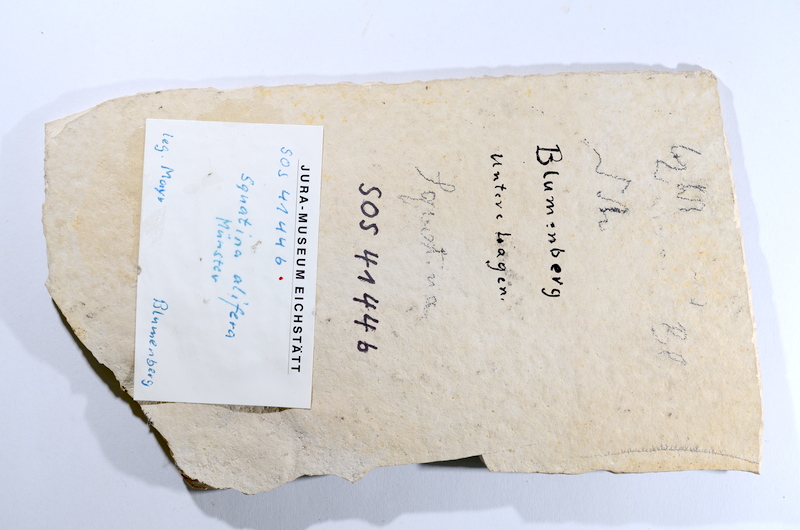 JURA-MUSEUM EICHSTÄTT
SOS 41446
Squatina alifera
Münster
leg. Mayr Blumenberg
Blumenberg
untere Lagen.
Squatina
SOS 41446